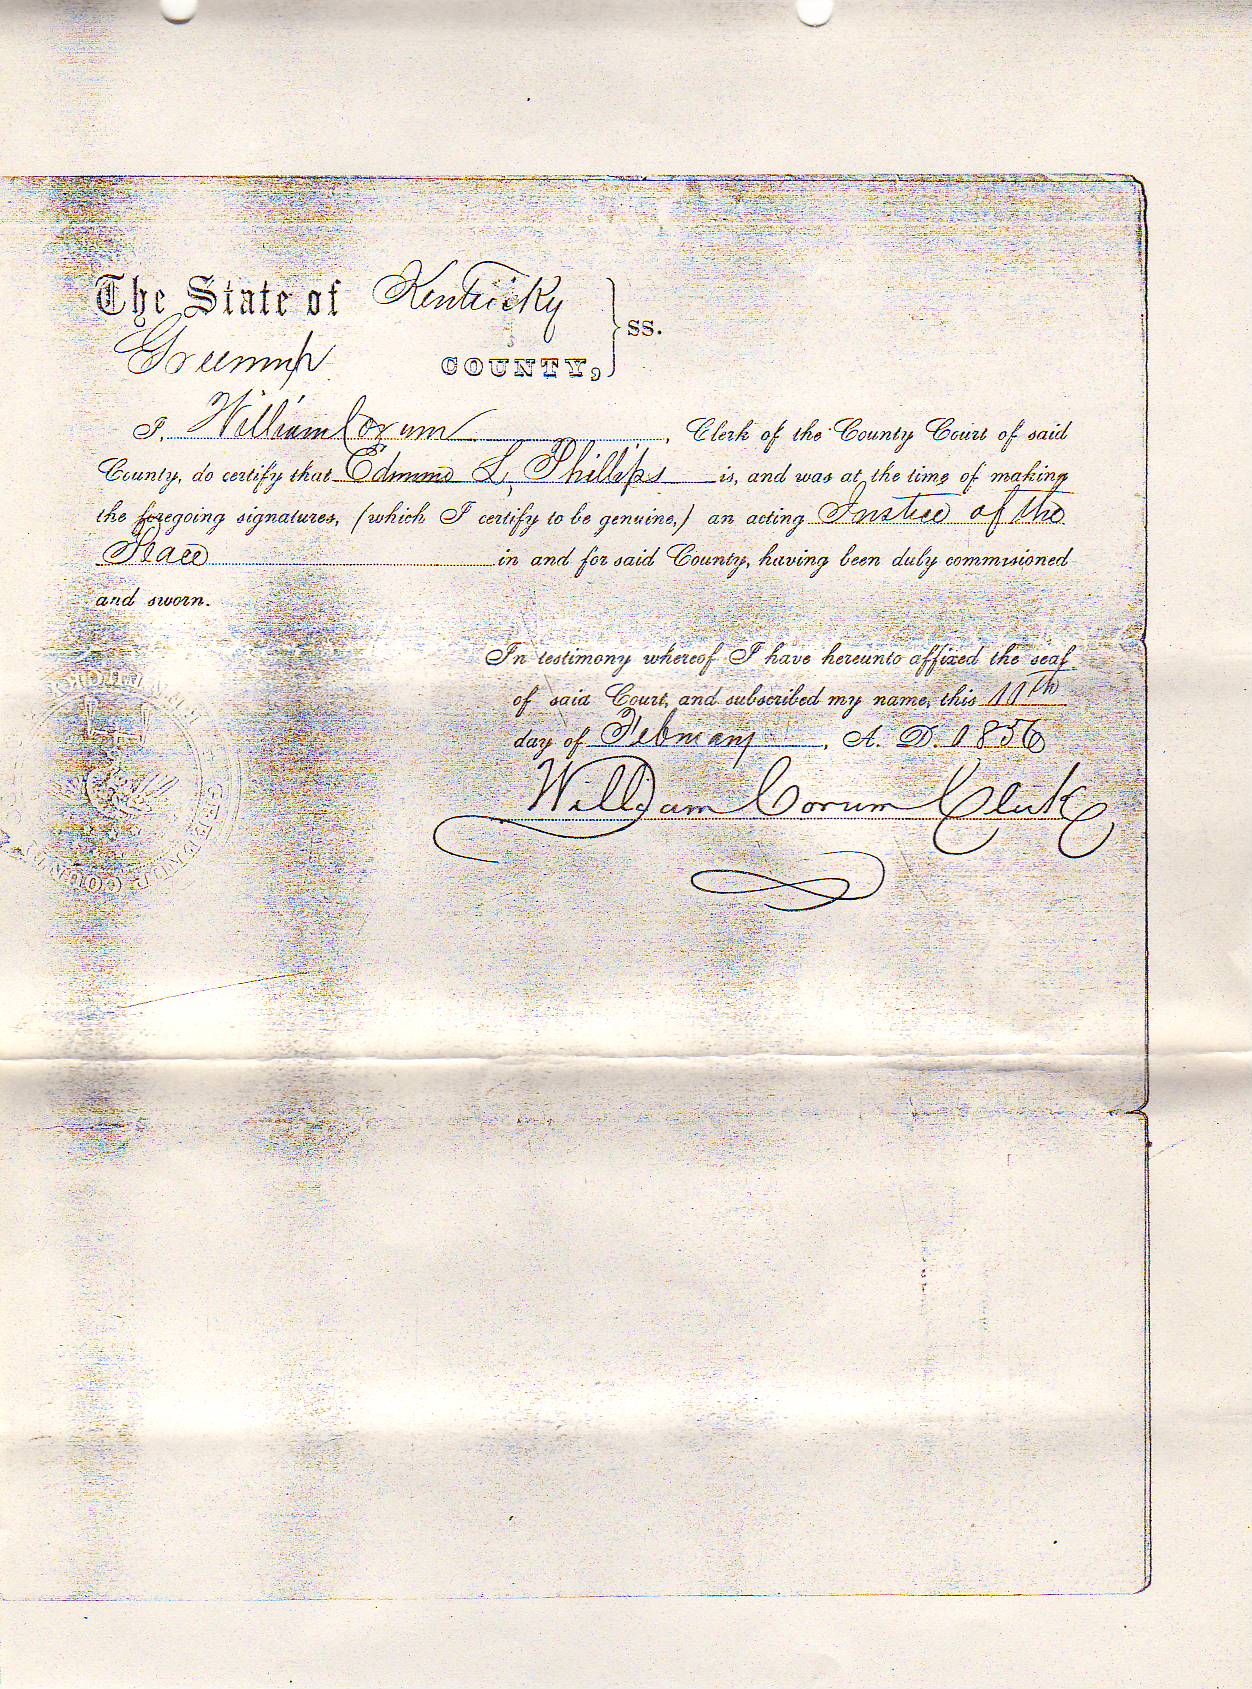 The State of Kentucky
Greenup COUNTY, } ss.
I, William Corum, Clerk of the County Court of said
County, do certify that Edmund L. Phillips is, and was at the time of making
the foregoing signatures, (which I certify to be genuine,) an acting Justice of the
Peace in and for said County, having been duly commisioned
and sworn.
In testimony whereof I have hereunto affixed the seal
of said Court, and subscribed my name, this 11th
day of February, A. D. 1856
William Corum Clerk
GREENUP COUNTY